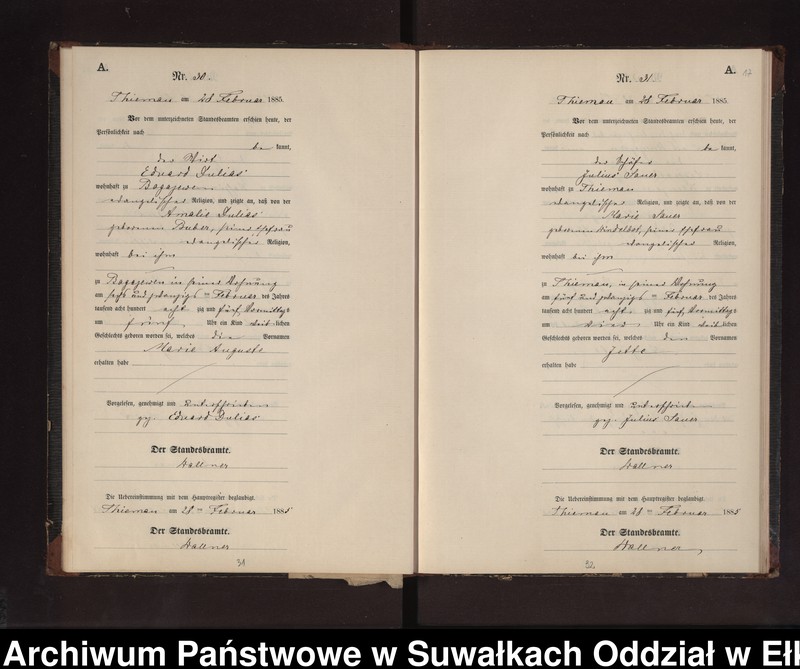 A.
Nr. 30.
Thiemau am 28 Februar 1885.
Vor dem unterzeichneten Standesbeamten erschien heute, der
Persönlichkeit nach
be kannt,
der Wirt
Eduard Julias
wohnhaft zu
evangelischer Religion, und zeigte an, daß von der
Amalie Julias
geborenen Buber, seiner Ehefrau
evangelischer Religion,
wohnhaft bei ihm
zu in seiner Wohnung
am sechs und zwanzigsten Februar des Jahres
tausend acht hundert acht zig und fünf, Vormittags
um fünf Uhr ein Kind weib lichen
Geschlechts geboren worden sei, welches die Vornamen
Marie Auguste
erhalten habe
Vorgelesen, genehmigt und unterschrieben
gez. Eduard Julias
Der Standesbeamte.
Wallner
Die Uebereinstimmung mit dem Hauptregister beglaubigt.
Thiemau am 28ten Februar 1885
Der Standesbeamte.
Wallner
31
A. 17
Nr. 31.
Thiemau am 28 Februar 1885.
Vor dem unterzeichneten Standesbeamten erschien heute, der
Persönlichkeit nach
be kannt,
der Schäfer
Julius Sauer
wohnhaft zu Thiemau
evangelischer Religion, und zeigte an, daß von der
Marie Sauer
geborenen seiner Ehefrau
evangelischer Religion,
wohnhaft bei ihm
zu Thiemau, in seiner Wohnung
am fünf und zwanzigsten Februar des Jahres
tausend acht hundert acht zig und fünf, Vormittags
um Uhr ein Kind weib lichen
Geschlechts geboren worden sei, welches den Vornamen
Jette
erhalten habe
Vorgelesen, genehmigt und unterschrieben
gez. Julius Sauer
Der Standesbeamte.
Wallner
Die Uebereinstimmung mit dem Hauptregister beglaubigt.
Thiemau am 28ten Februar 1885
Der Standesbeamte.
Wallner
32
Archiwum Państwowe w Suwałkach Oddział w Ełk